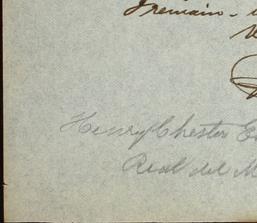 I remain -
Henry Chester
Real del